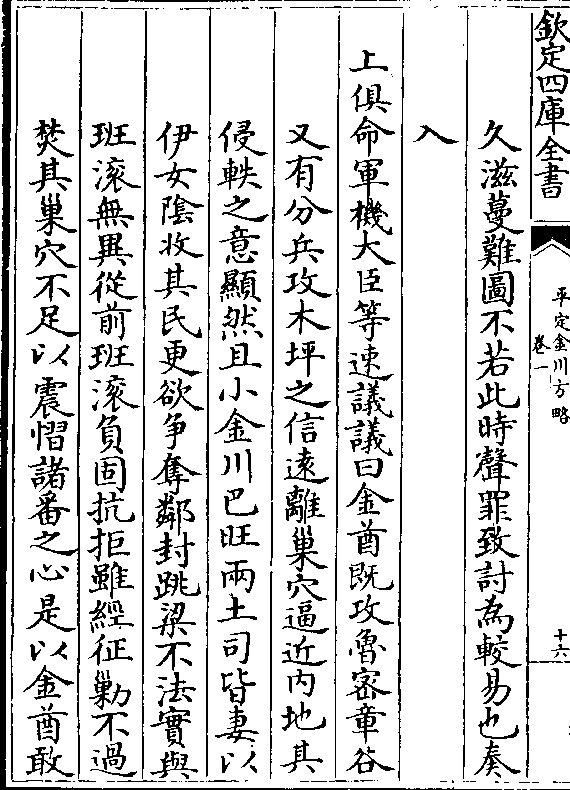 欽定四庫全書
平定金川方略
卷一
十六
久滋蔓難圖不若此時聲罪致討為較易也奏
入
上俱命軍機大臣等速議議曰金酋既攻魯密章谷
又有分兵攻木坪之信遠離巢穴逼近内地其
侵軼之意顯然且小金川巴旺兩土司皆妻以
伊女陰收其民更欲争奪鄰封跳梁不法實與
班滚無異從前班滚負固抗拒雖經征勦不過
焚其巢穴不足以震慴諸番之心是以金酋敢